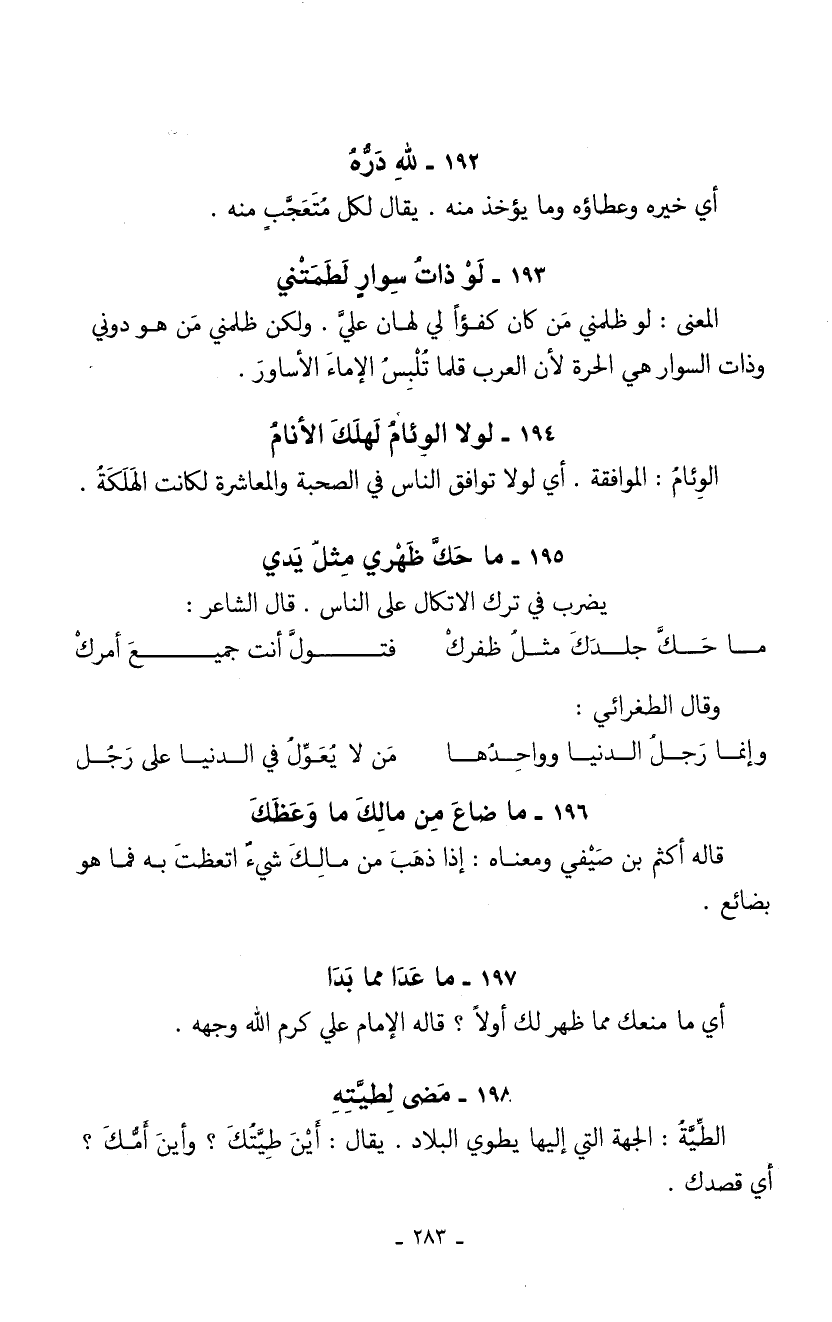 ١٩٢ ـ للهِ دَرُّهُ
أي خيره وعطاؤه وما يؤخذ منه . يقال لكل مُتَعَجَّبٍ منه .
١٩٣ ـ لَوْ ذاتُ سِوارٍ لَطَمَتْني
المعنى : لو ظلمني مَن كان كفؤاً لي لهان عليَّ . ولكن ظلمني مَن هو دوني
وذات السوار هي الحرة لأن العرب قلما تُلْبِسُ الإماءَ الأساورَ .
١٩٤ ـ لولا الوِئامُ لَهلَكَ الأنامُ
الوِئامُ : الموافقة . أي لولا توافق الناس في الصحبة والمعاشرة لكانت الهَلَكَةُ .
١٩٥ ـ ما حَكَّ ظَهْري مِثلُ يَدي
يضرب في ترك الاتكال على الناس . قال الشاعر :
مـا حَـكَّ جلـدَكَ مثـلُ ظفركْ فتـولَّ أنت جميـعَ أمركْ
وقال الطغرائي :
وإنمـا رَجـلُ الـدنيـا وواحِـدُهـا مَن لا يُعَوِّلُ في الـدنيـا على رَجُـل
١٩٦ ـ ما ضاعَ مِن مالِكَ ما وَعَظَكَ
قاله أكثم بن صَيْفي ومعناه : إذا ذهَبَ من مالِكَ شيءٌ اتعظتَ به فما هو
بضائع .
١٩٧ ـ ما عَدَا مما بَدَا
أي ما منعك مما ظهر لك أولاً ؟ قاله الإمام علي كرم الله وجهه .
١٩٨ ـ مَضى لِطيَّتِهِ
الطِّيَّةُ : الجهة التي إليها يطوي البلاد . يقال : أَيْنَ طِيَّتُكَ ؟ وأينَ أَمُّكَ ؟
أي قصدك .
ـ ٢٨٣ ـ